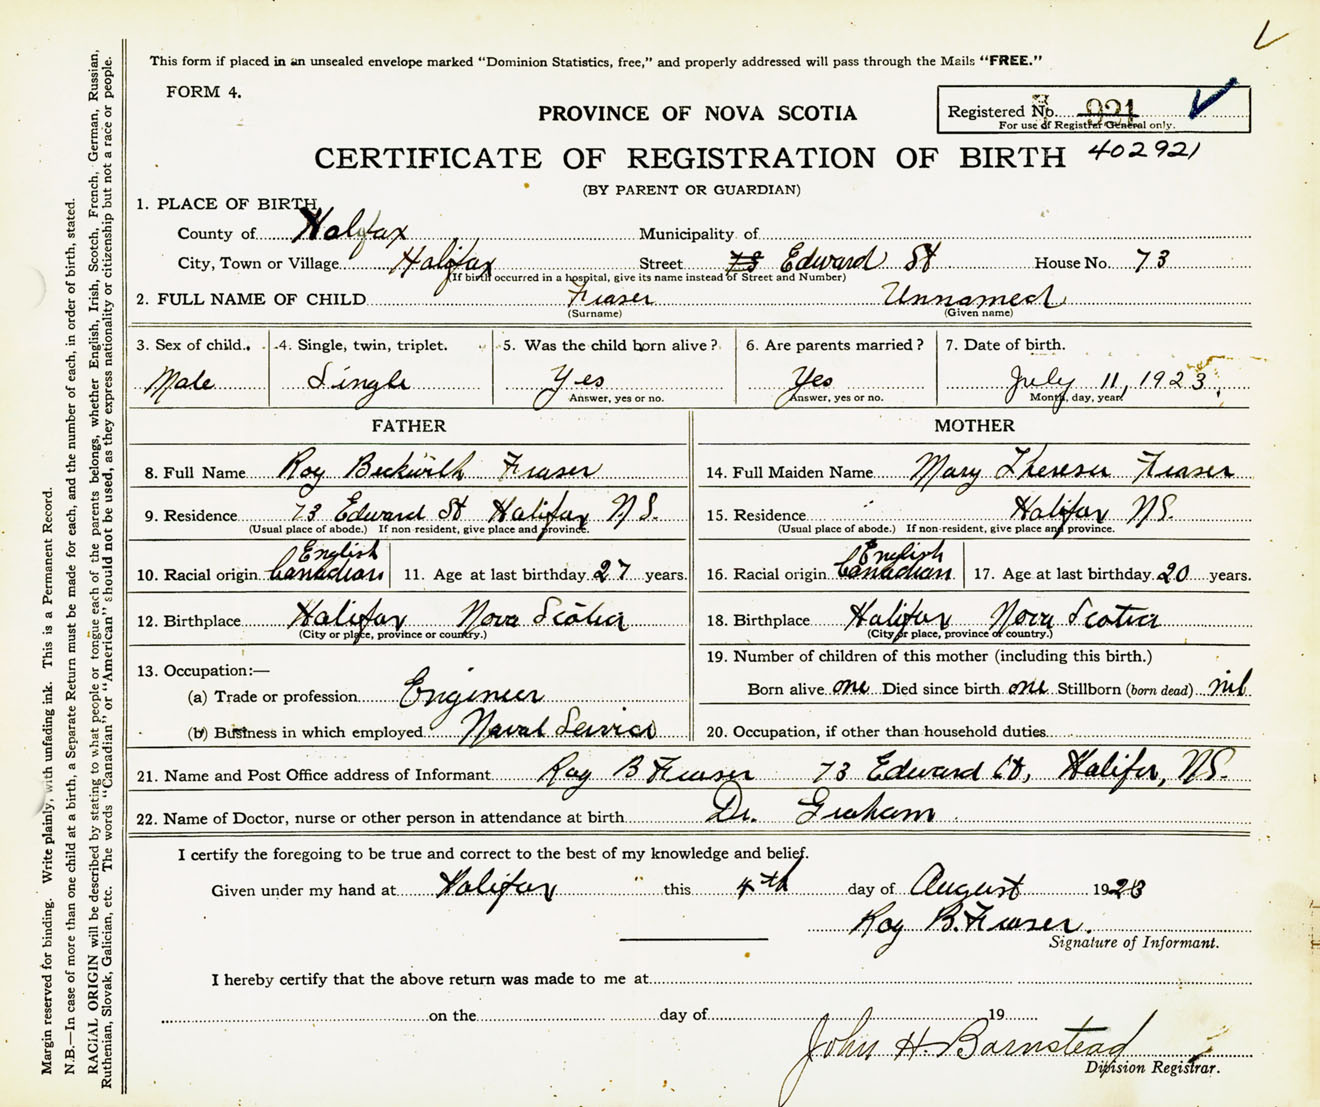 This form if placed in an unsealed envelope marked "Dominion Statistics, free," and properly addressed will pass through the Mails "FREE."
FORM 4.
PROVINCE OF NOVA SCOTIA
Registered No. 921
For use of Registrar General only.
CERTIFICATE OF REGISTRATION OF BIRTH 402921
(BY PARENT OR GUARDIAN)
1. PLACE OF BIRTH
County of Halifax Municipality of
City, Town or Village Halifax Street 73 Edward St House No. 73
(If birth occurred in a hospital, give its name instead of Street and Number)
2. FULL NAME OF CHILD Fraser Unnamed
(Surname) (Given name)
3. Sex of child. 4. Single, twin, triplet. 5. Was the child born alive? 6. Are parents married? 7. Date of birth.
Male Single Yes Yes July 11, 1923
Answer, yes or no. Answer, yes or no. Month, day, year
FATHER MOTHER
8. Full Name Roy Beckwith Fraser 14. Full Maiden Name Mary Theresa Fraser
9. Residence 73 Edward St Halifax N.S. 15. Residence Halifax N.S.
(Usual place of abode.) If non-resident, give place and province. (Usual place of abode.) If non-resident, give place and province.
English English
10. Racial origin Canadian 11. Age at last birthday 27 years. 16. Racial origin Canadian 17. Age at last birthday 20 years.
12. Birthplace Halifax Nova Scotia 18. Birthplace Halifax Nova Scotia
(City or place, province or country.) (City or place, province or country.)
13. Occupation:— 19. Number of children of this mother (including this birth.)
(a) Trade or profession Engineer Born alive one Died since birth one Stillborn (born dead) nil
(b) Business in which employed Naval Service 20. Occupation, if other than household duties
21. Name and Post Office address of Informant Roy B Fraser 73 Edward St, Halifax, N.S.
22. Name of Doctor, nurse or other person in attendance at birth Dr. Graham
I certify the foregoing to be true and correct to the best of my knowledge and belief.
Given under my hand at Halifax this 4th day of August 1923
Roy B. Fraser.
Signature of Informant.
I hereby certify that the above return was made to me at
on the day of 19
John H. Barnstead
Division Registrar.
Margin reserved for binding. Write plainly, with unfading ink. This is a Permanent Record.
N.B.—In case of more than one child at a birth, a Separate Return must be made for each, and the number of each, in order of birth, stated.
RACIAL ORIGIN will be described by stating to what people or tongue each of the parents belongs, whether English, Irish, Scotch, French, German, Russian,
Ruthenian, Slovak, Galician, etc. The words "Canadian" or "American" should not be used, as they express nationality or citizenship but not a race or people.